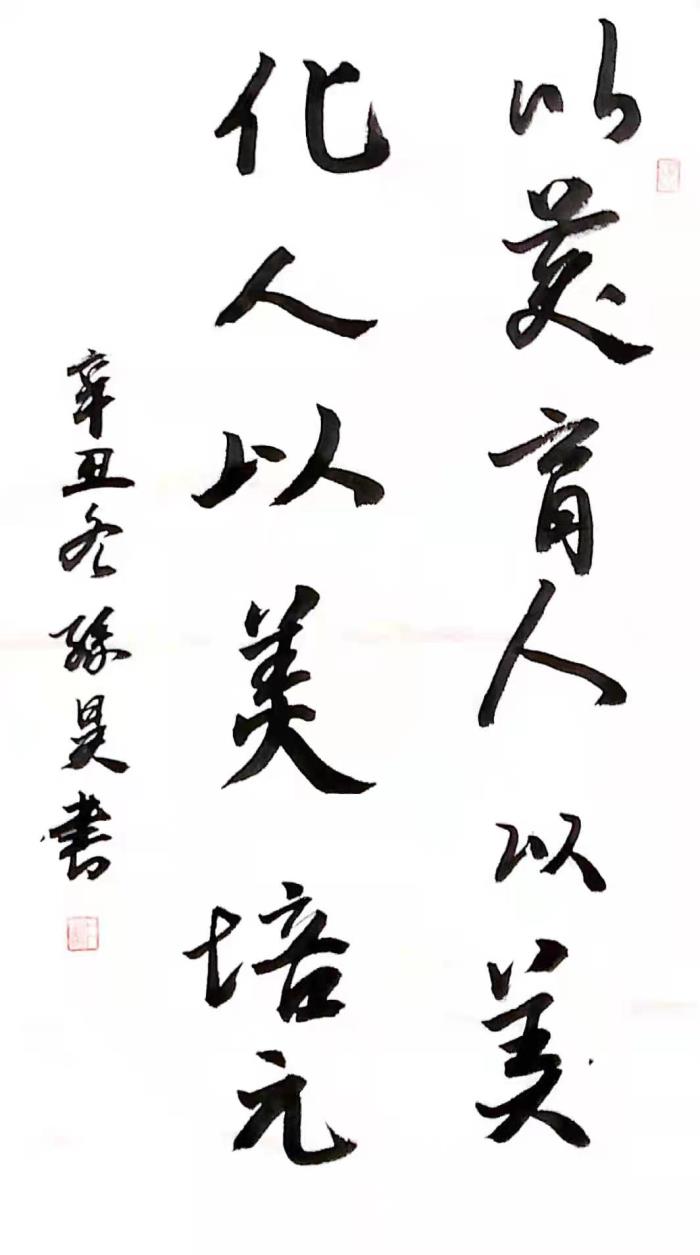 以美育人以美
化人以美培元
辛丑冬孙昊书